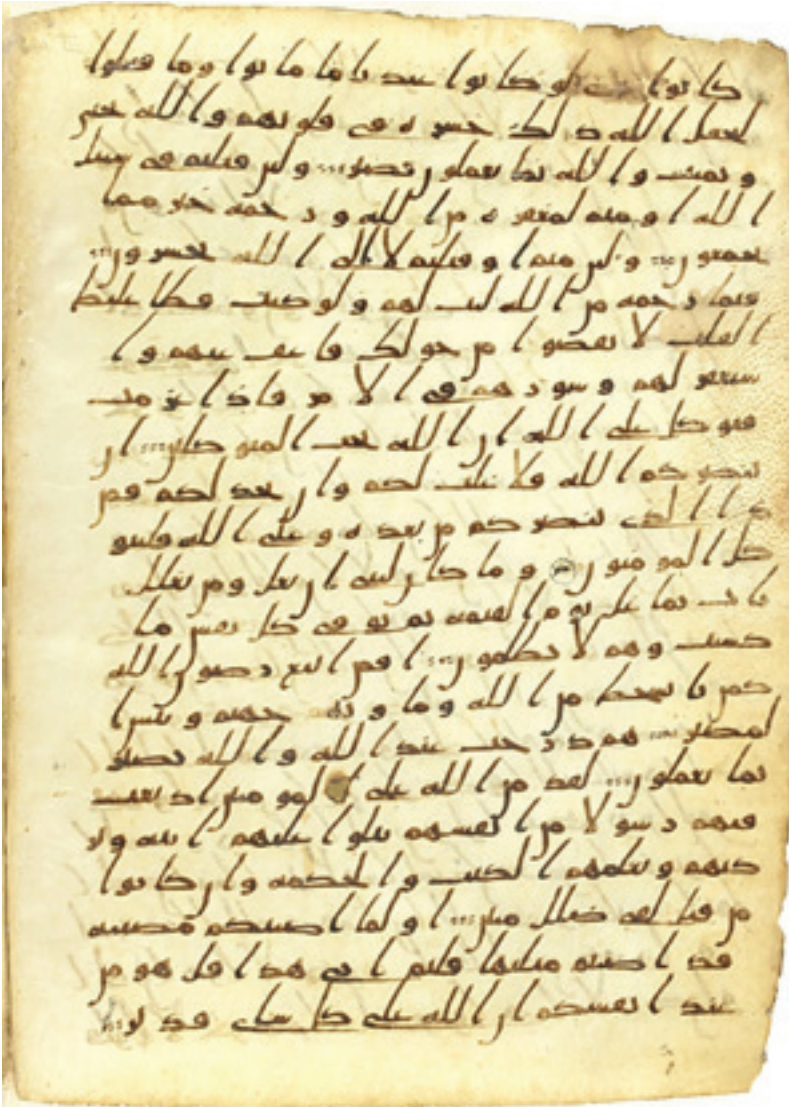 كانوا لو كانوا عندنا ما ماتوا وما قتلوا
ليجعل الله ذلك حسرة في قلوبهم والله يحي
ويميت والله بما تعملون بصير ولئن قتلتم في سبيل
الله او متم لمغفرة من الله ورحمة خير مما
يجمعون ولئن متم او قتلتم لا الى الله تحشرون
فبما رحمة من الله لنت لهم ولو كنت فظا غليظ
القلب لانفضوا من حولك فاعف عنهم وا
ستغفر لهم وشورهم في الامر فاذا عزمت
فتوكل على الله ان الله يحب المتوكلين ان
ينصركم الله فلا غلب لكم وان يخذلكم فمن
ذا الذي ينصركم من بعده وعلى الله فليتو
كل المومنون وما كان لنبي ان يغل ومن يغلل
يات بما غل يوم القيمة ثم توفى كل نفس ما
كسبت وهم لا يظلمون افمن اتبع رضون الله
كمن با بسخط من الله وماويه جهنم وبئس ا
لمصير هم درجت عند الله والله بصير
بما يعملون لقد من الله على المومنين اذ بعث
فيهم رسولا من انفسهم يتلوا عليهم ايته ويز
كيهم ويعلمهم الكتب والحكمة وان كانوا
من قبل لفي ضلل مبين او لما اصبتكم مصيبة
قد اصبتم مثليها قلتم انى هذا قل هو من
عند انفسكم ان الله على كل شي قدير